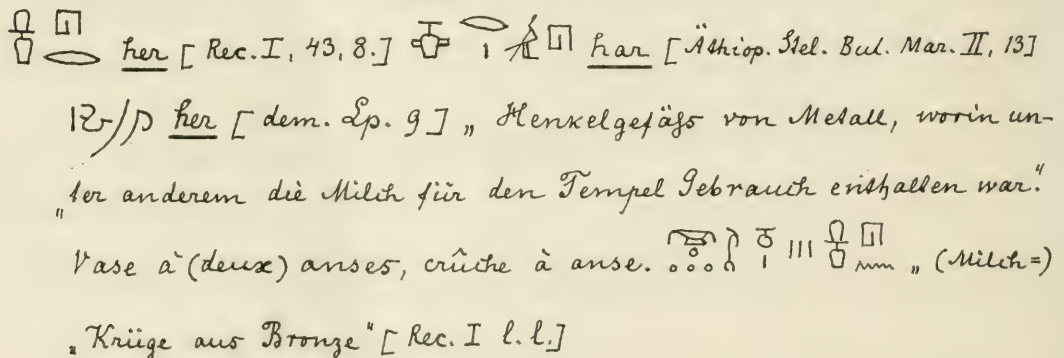 her [Rec. I, 43, 8.] har [Äthiop. Stel. Bul. Mar. II, 13]
her [dem. Lp. 9] „Henkelgefäfs von Metall, worin un-
„ter anderem die Milch für den Tempel Gebrauch enthalten war."
Vase à (deux) anses, crûche à anse. „(Milch=)
„Krüge aus Bronze" [Rec. I l. l.]